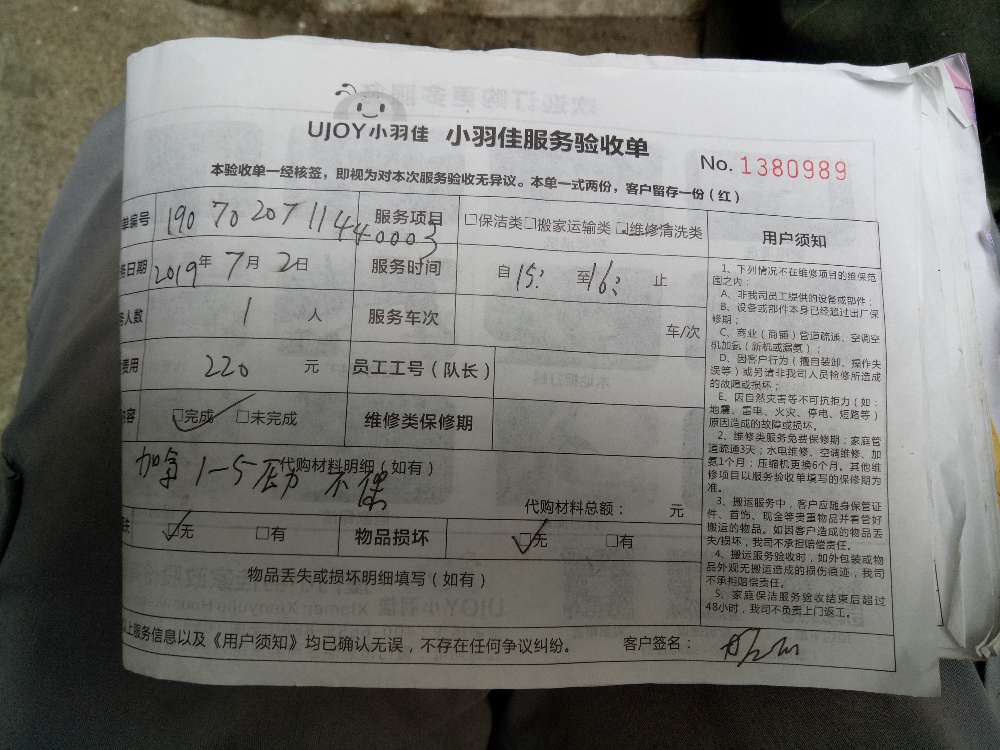 UJOY小羽佳 小羽佳服务验收单
No. 1380989
本验收单一经核签，即视为对本次服务验收无异议。本单一式两份，客户留存一份（红）
单编号 190702071144 0003 服务项目 □保洁类□搬家运输类□维修清洗类
务日期 2019年7月2日 服务时间 自15: 至16: 止
务人数 1 人 服务车次 车/次
费用 220 元 员工工号（队长）
内容 □完成 □未完成 维修类保修期
代购材料明细（如有）
加氟 1-5 压力 不保
代购材料总额： 元
□无 □有 物品损坏 □无 □有
物品丢失或损坏明细填写（如有）
上服务信息以及《用户须知》均已确认无误，不存在任何争议纠纷。 客户签名：
用户须知
1、下列情况不在维修项目的维保范
围之内：
A、非我司员工提供的设备或部件；
B、设备或部件本身已经超过出厂保
修期；
C、商业（商铺）管道疏通、空调空
机加氨（新机或漏氨）；
D、因客户行为（擅自装卸、操作失
误等）或另请非我司人员检修所造成
的故障或损坏；
E、因自然灾害等不可抗拒力（如：
地震、雷电、火灾、停电、短路等）
原因造成的故障或损坏。
2、维修类服务免费保修期：家庭管
道疏通3天；水电维修、空调维修、加
氨1个月；压缩机更换6个月。其他维
修项目以服务验收单填写的保修期为
准。
3、搬运服务中，客户应随身保管证
件、首饰、现金等贵重物品并看管好
搬运的物品。如因客户造成的物品丢
失/损坏，我司不承担赔偿责任。
4、搬运服务验收时，如外包装或物
品外观无搬运造成的损伤痕迹，我司
不承担赔偿责任。
5、家庭保洁服务验收结束后超过
48小时，我司不负责上门返工。